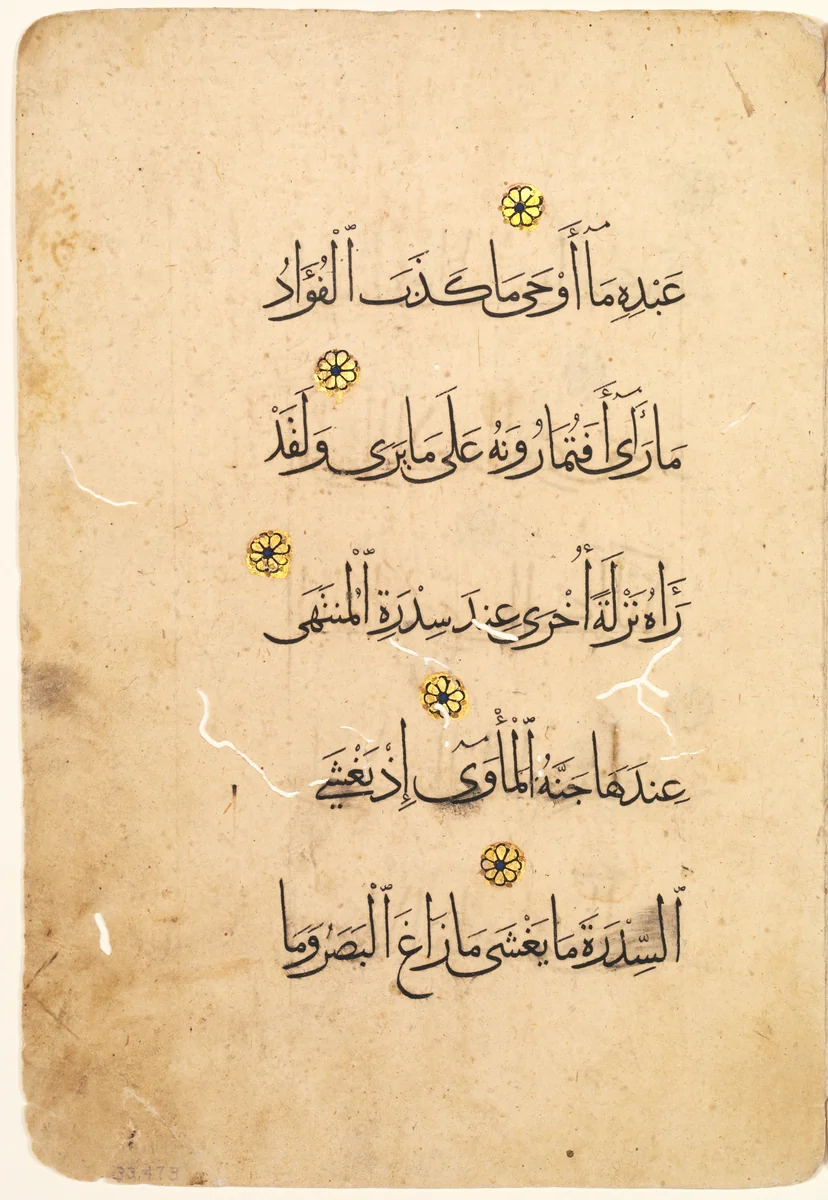 عَبْدِهِ مَآ أَوْحَى مَا كَذَبَ ٱلْفُؤَادُ
مَا رَأَى أَفَتُمَارُونَهُ عَلَى مَا يَرَى وَلَقَدْ
رَءَاهُ نَزْلَةً أُخْرَى عِندَ سِدْرَةِ ٱلْمُنتَهَى
عِندَهَا جَنَّةُ ٱلْمَأْوَى إِذْ يَغْشَى
ٱلسِّدْرَةَ مَا يَغْشَى مَا زَاغَ ٱلْبَصَرُ وَمَا
33.473